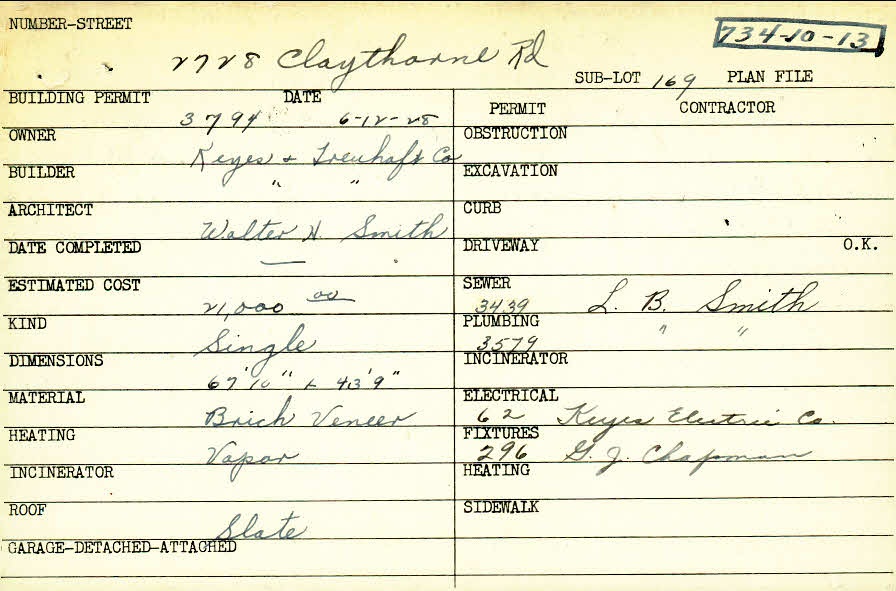 NUMBER-STREET
734-10-13
2728 Claythorne Rd
SUB-LOT 169 PLAN FILE
BUILDING PERMIT DATE
3794 6-12-28
PERMIT CONTRACTOR
OWNER
Keyes & Treuhaft Co
OBSTRUCTION
BUILDER
" "
EXCAVATION
ARCHITECT
Walter H. Smith
CURB
DATE COMPLETED
—
DRIVEWAY O.K.
ESTIMATED COST
21,000 00
SEWER
3439 L. B. Smith
KIND
Single
PLUMBING
3579 " "
DIMENSIONS
67'10" x 43'9"
INCINERATOR
MATERIAL
Brick Veneer
ELECTRICAL
62 Keyes Electric Co.
HEATING
Vapor
FIXTURES
296 G. J. Chapman
INCINERATOR
HEATING
ROOF
Slate
SIDEWALK
GARAGE-DETACHED-ATTACHED